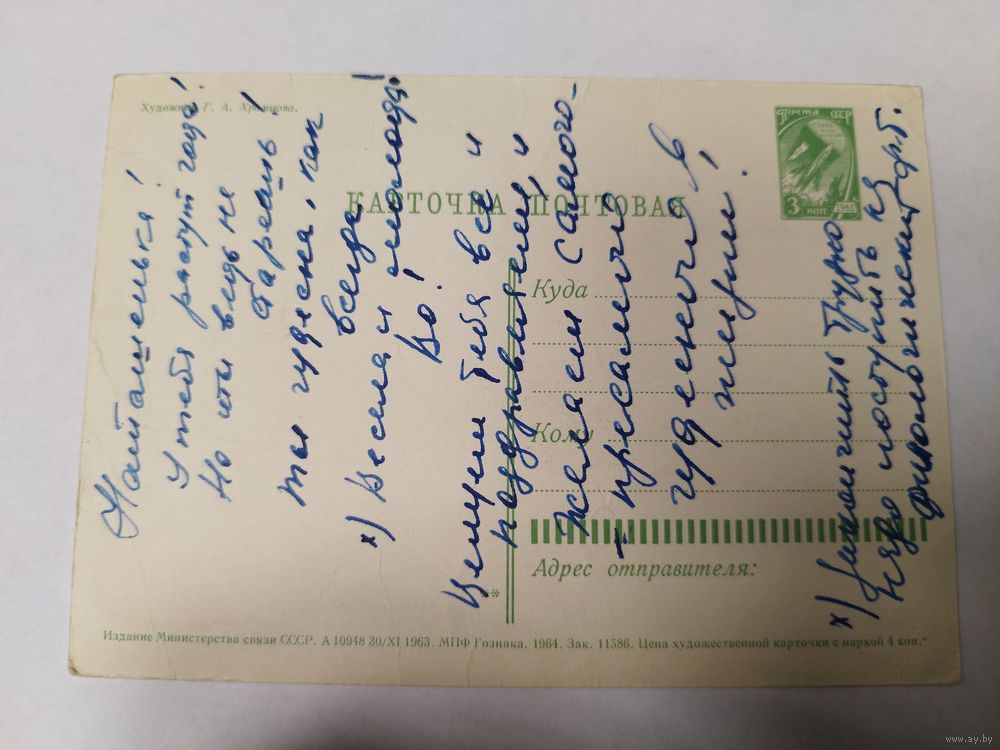 Художник Г. А. Храпцова.
Почта СССР
1961
3 коп
КАРТОЧКА ПОЧТОВАЯ
Куда
Кому
Адрес отправителя:
Издание Министерства связи СССР. А 10948 30/XI 1963. МПФ Гознака. 1964. Зак. 11586. Цена художественной карточки с маркой 4 коп.
**
Наташенька!
У тебя растут года!
Но ты ведь не
стареешь!
Ты чудесна, как
всегда
х) Весела и молода!
Во!
Целуем тебя все и
поздравляем, и
желаем самого-
- пресамого
чудесного в
жизни!
х) Трудно
надо поступить на
филологический ф-т.
www.ay.by